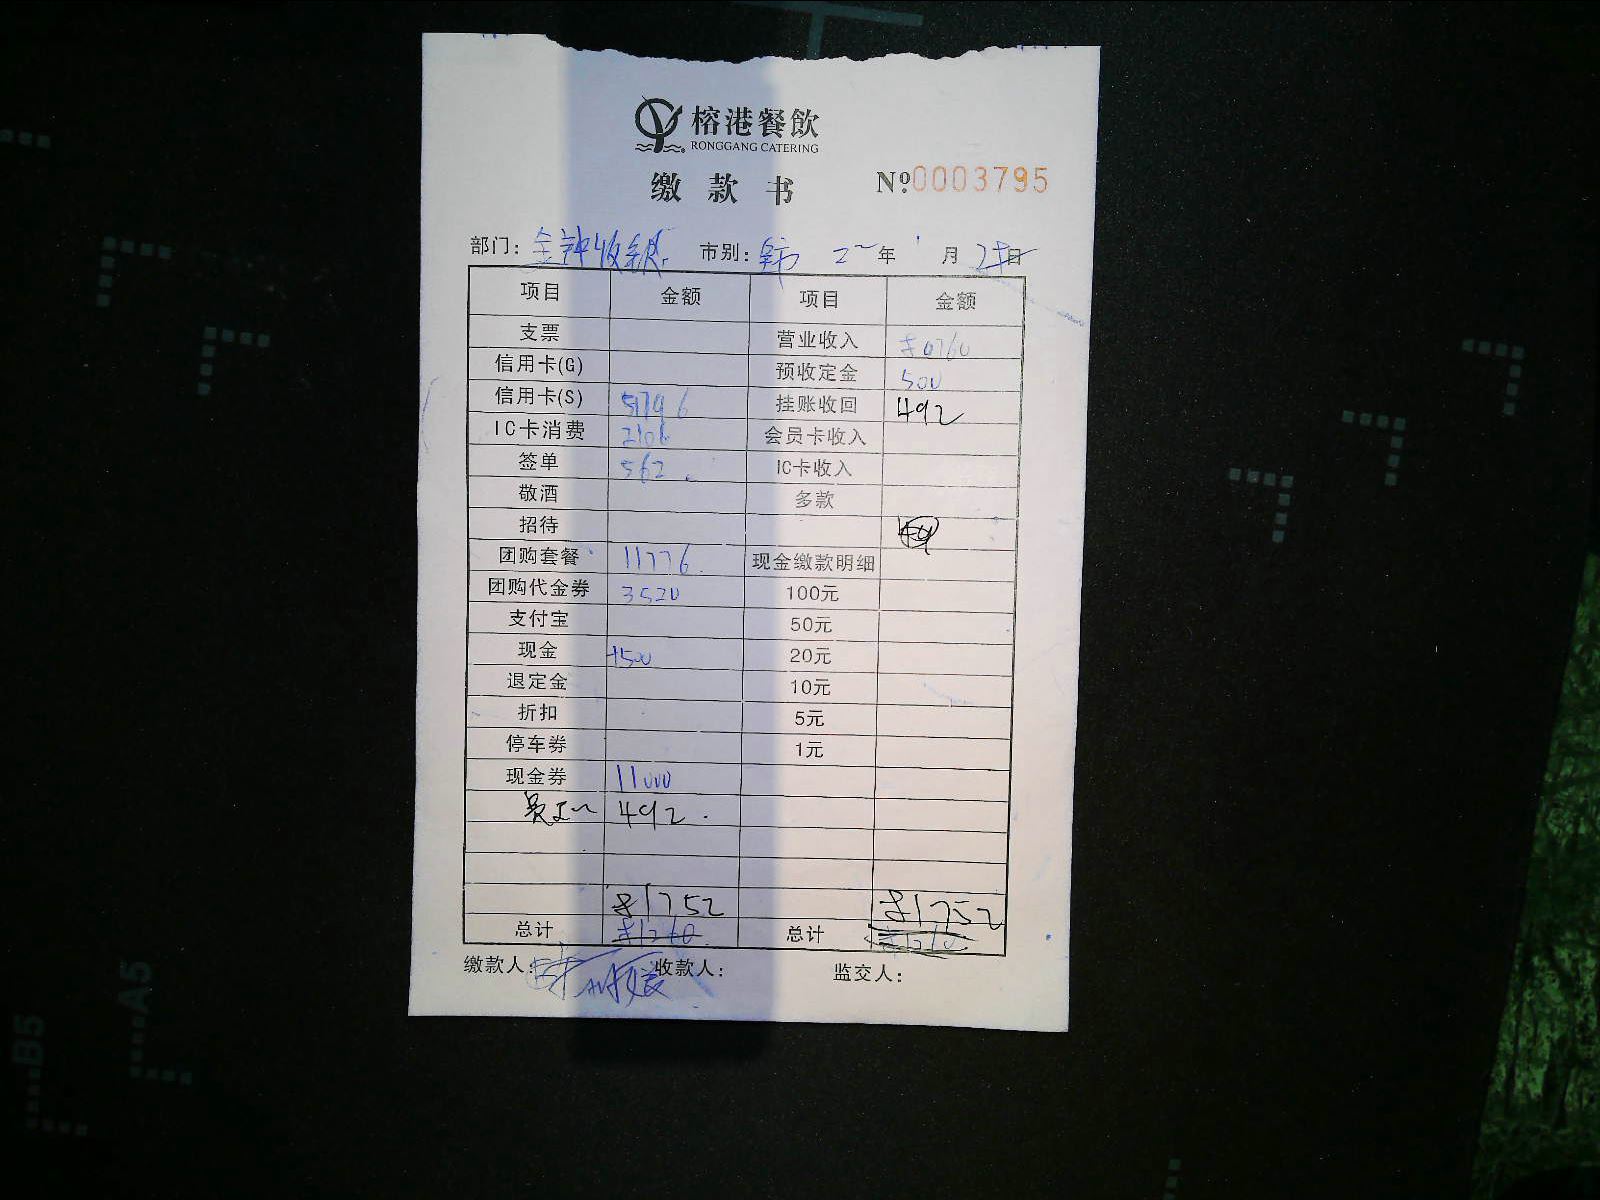 榕港餐飲
RONGGANG CATERING
缴款书 №0003795
部门: 金钟收银 市别: 年 月 日
项目 金额 项目 金额
支票 营业收入
信用卡(G) 预收定金 500
信用卡(S) 51796 挂账收回 492
IC卡消费 2106 会员卡收入
签单 562 IC卡收入
敬酒 多款
招待
团购套餐 11776 现金缴款明细
团购代金券 3520 100元
支付宝 50元
现金 +500 20元
退定金 10元
折扣 5元
停车券 1元
现金券 11000
492
81752 81752
总计 81260 总计
缴款人: 收款人: 监交人:
A5
B5